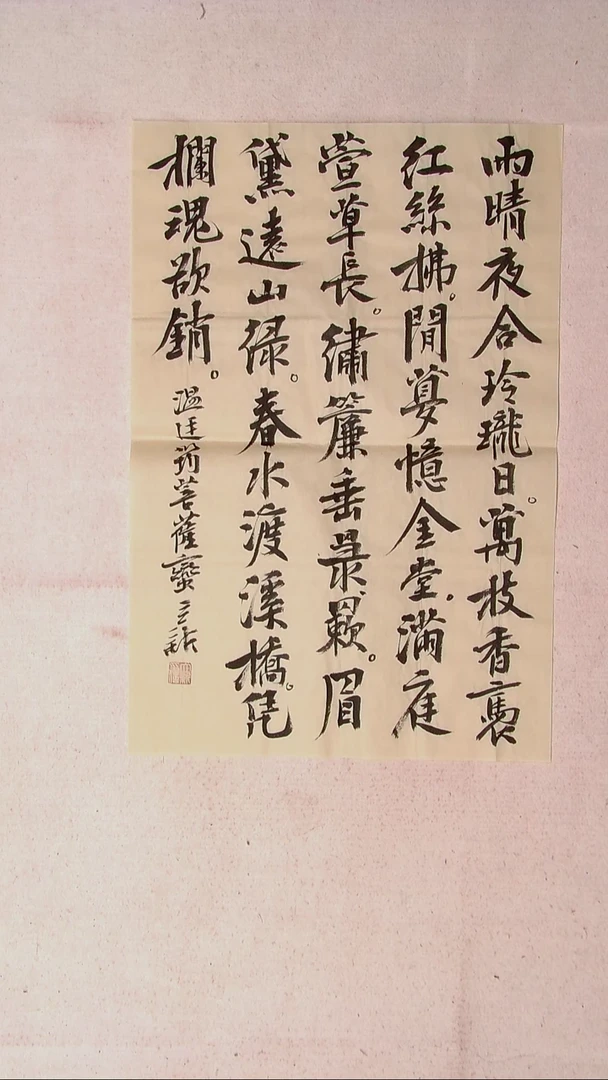 雨晴夜合玲瓏日。萬枝香裊
红絲拂。閒夢憶金堂。滿庭
萱草長。繡簾垂录。眉
黛遠山绿。春水渡溪橋。凭
欄魂欲銷。
温廷筠菩薩蠻